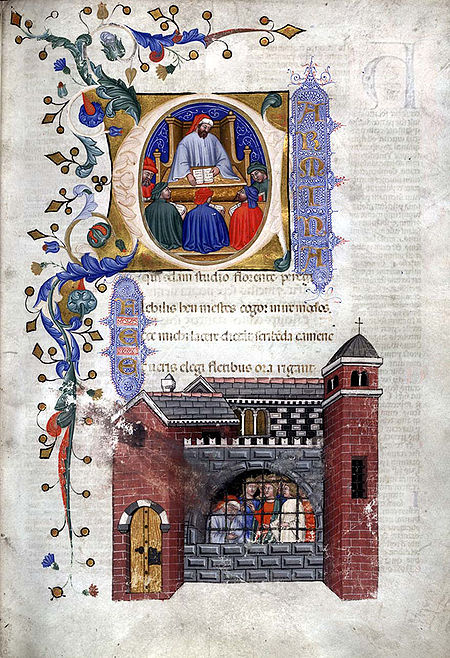 CARMINA
qui quondam studio florente peregi
Flebilis heu mestos cogor inire modos
Ecce michi lacere dictāt scribēda camene
Et ueris elegi fletibus ora rigant